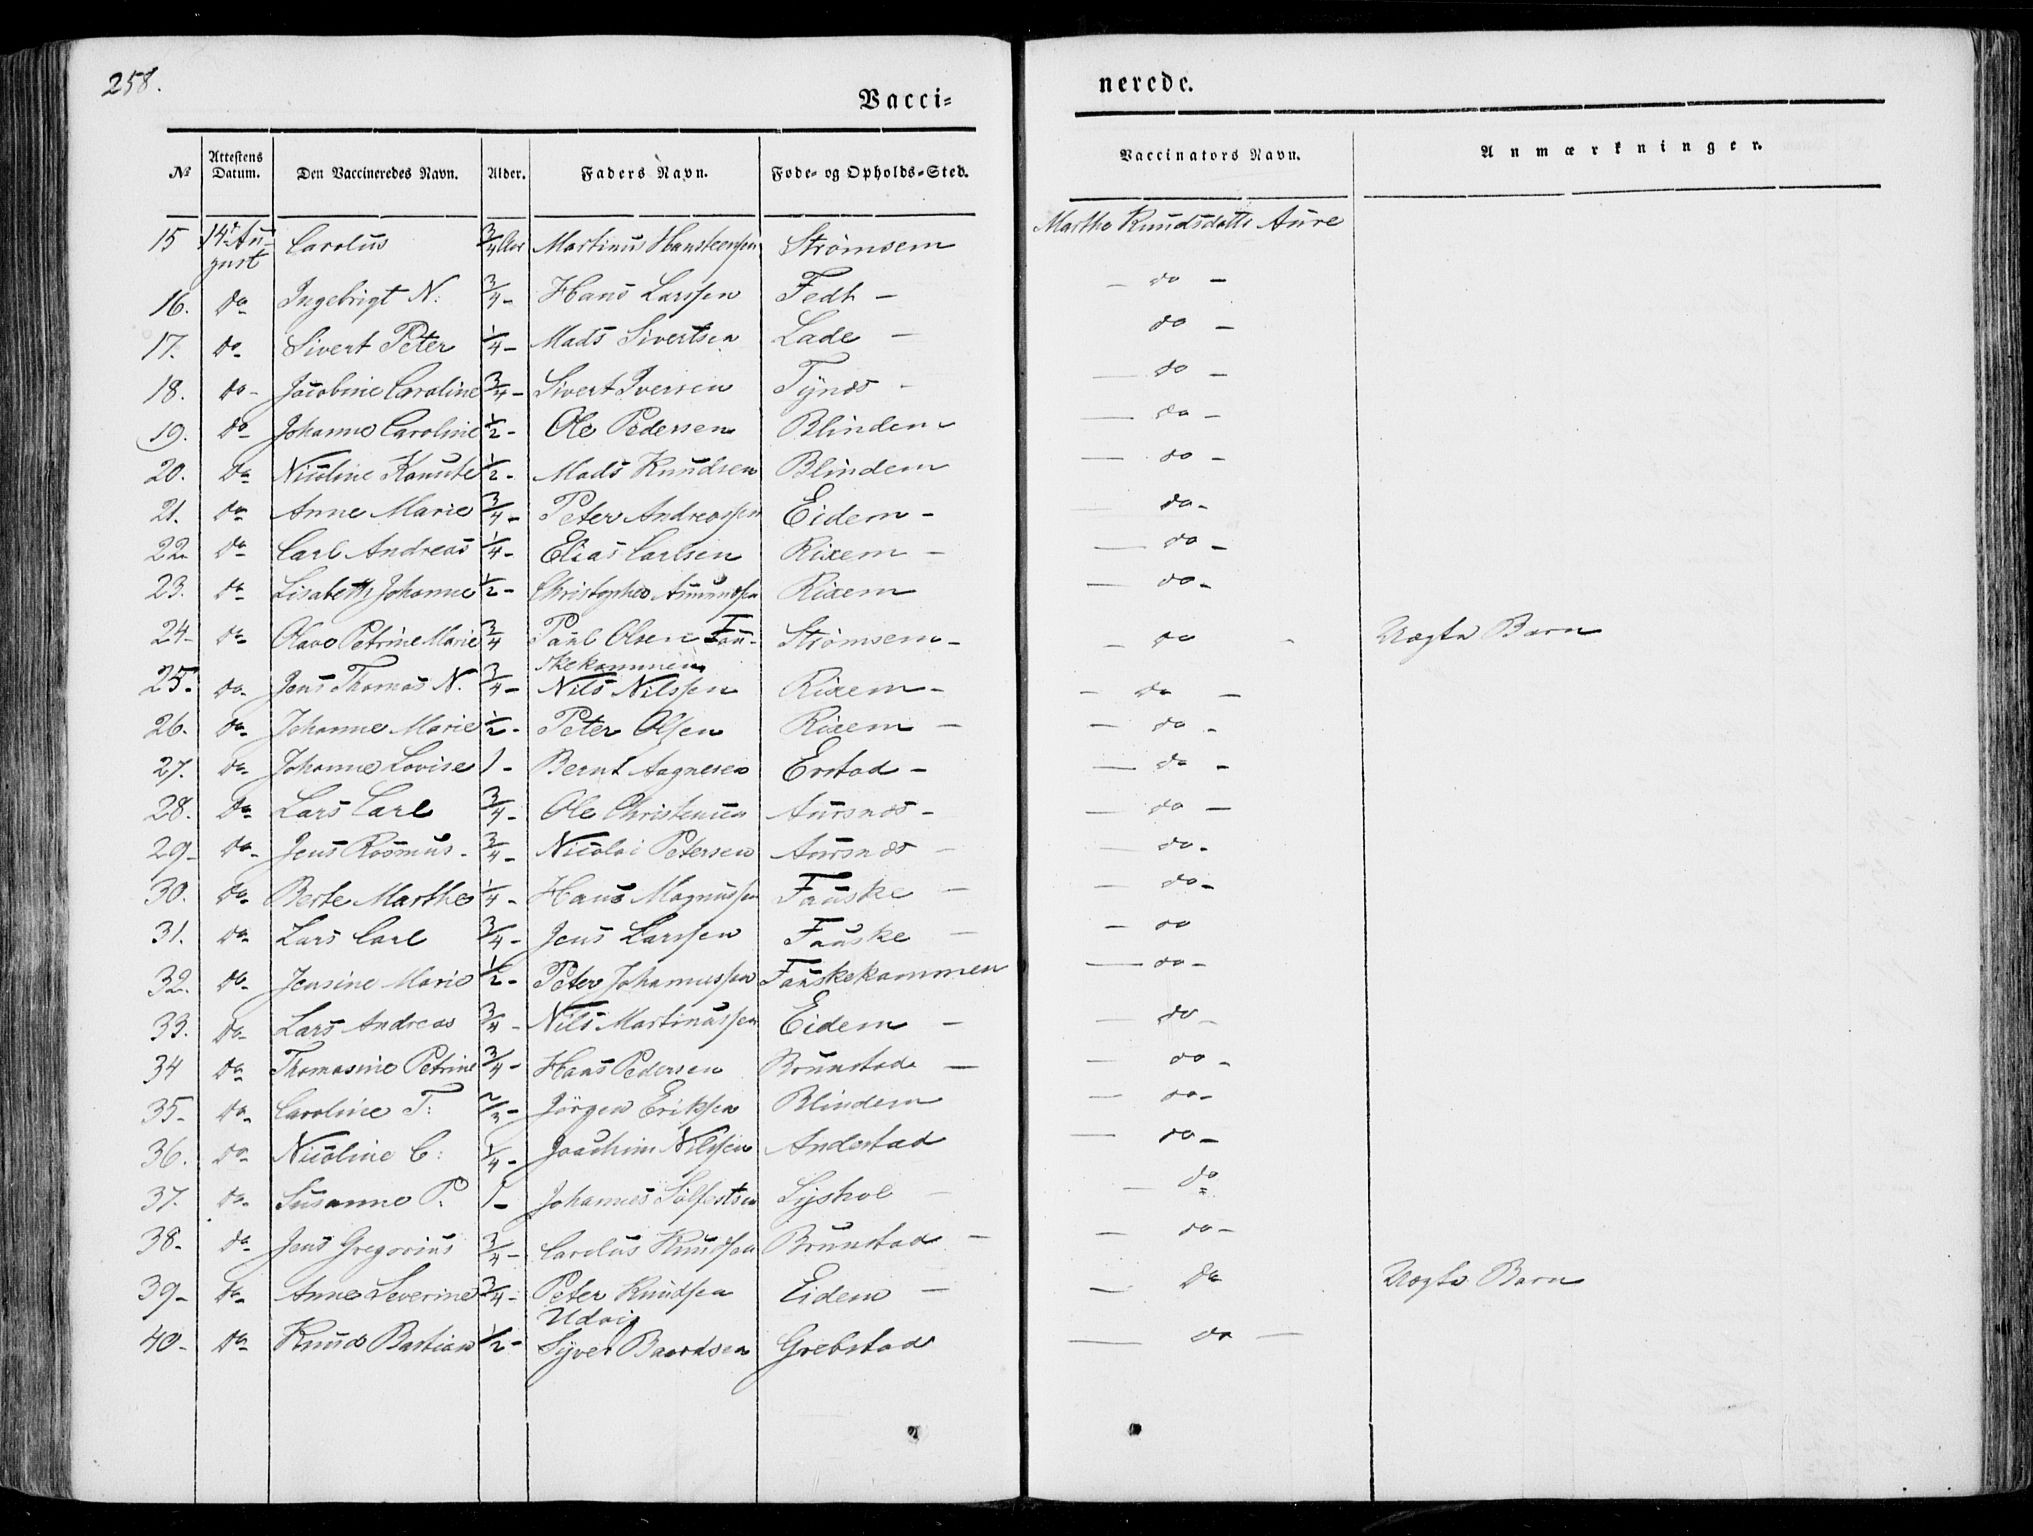 258.
Vacci=
nerede.
№ Attestens Datum. Den Vaccineredes Navn. Alder. Faders Navn. Føde- og Opholds-Sted. Vaccinators Navn. Anmærkninger.
15 14de August Carolus 3/4 Martinus Strømsem Marthe Knudsdatt. Aure
16. do Ingebrigt N: 3/4 - Hans Larssen Fedt - - do -
17. do Sivert Peter 1/4 - Mads Sivertsen Lade - do -
18. do- Jacobine Caroline 3/4 - Sivert Iversen Tynæs - - do -
19. do Johanne Caroline 1/2 - Ole Pedersen Blindem - do -
20. do Nicoline Kanute 1/2 - Mads Knudsen Blindem - do -
21. do Anne Marie 3/4 - Peter Andreassen Eidem - do -
22. do Carl Andreas 1/4 - Elias Carlsen Rixem - - do -
23. do Lisabeth Johanne 1/2 - Christopher Amundsen Rixem - do -
24- do Olave Petrine Marie 3/4 Paul Olsen Fauskekammen Strømsem - - do - Uægte Barn
25. do- Jens Thomas N. 3/4 - Nils Nilssen Rixem - - do -
26. do- Johanne Marie 1/2 - Peter Olsen Rixem - - do -
27. do- Johanne Lovise 1 - Bernt Aagnesen Erstad - - do -
28. do Lars Carl 3/4 - Ole Christensen Aursnæs - - do -
29- do- Jens Rasmus - 3/4 - Nicolai Petersen Aursnæs - - do -
30. do- Berte Marthe 1/4 - Hans Magnussen Fauske - - do -
31. do- Lars Carl 3/4 - Jens Larssen Fauske - - do
32. do- Jensine Marie 1/2 - Peter Johannessen Fauskekammen - do -
33. do- Lars Andreas 3/4 - Nils Martinussen Eidem - - do -
34 do- Thomasine Petrine 3/4 - Hans Pedersen Brunstad - - do -
35- do- Caroline T: 2/3 - Jørgen Eriksen Blindem - do -
36. do- Nicoline C: 1/4 - Joachim Nilssen Andestad - do -
37. do- Susanne P. 1 - Johannes Sølfestsen Lyshol - - do
38- do Jens Gregorius 3/4 - Carolus Knudsen Brunstad - - do -
39- do- Anne Severine 3/4 - Peter Knudsen Eidem - - do Uægte Barn
40- do- Knud Bastian 1/2 - Syver Baardsen Grebstad - do -